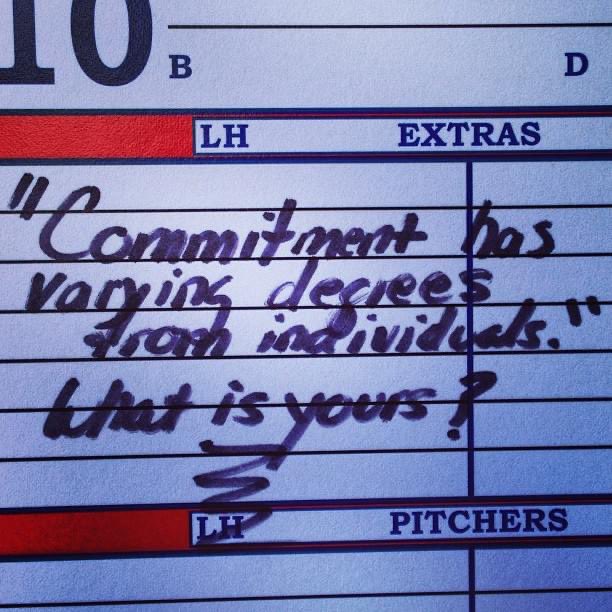 10 B D
LH EXTRAS
"Commitment has
varying degrees
from individuals."
What is yours?
LH PITCHERS